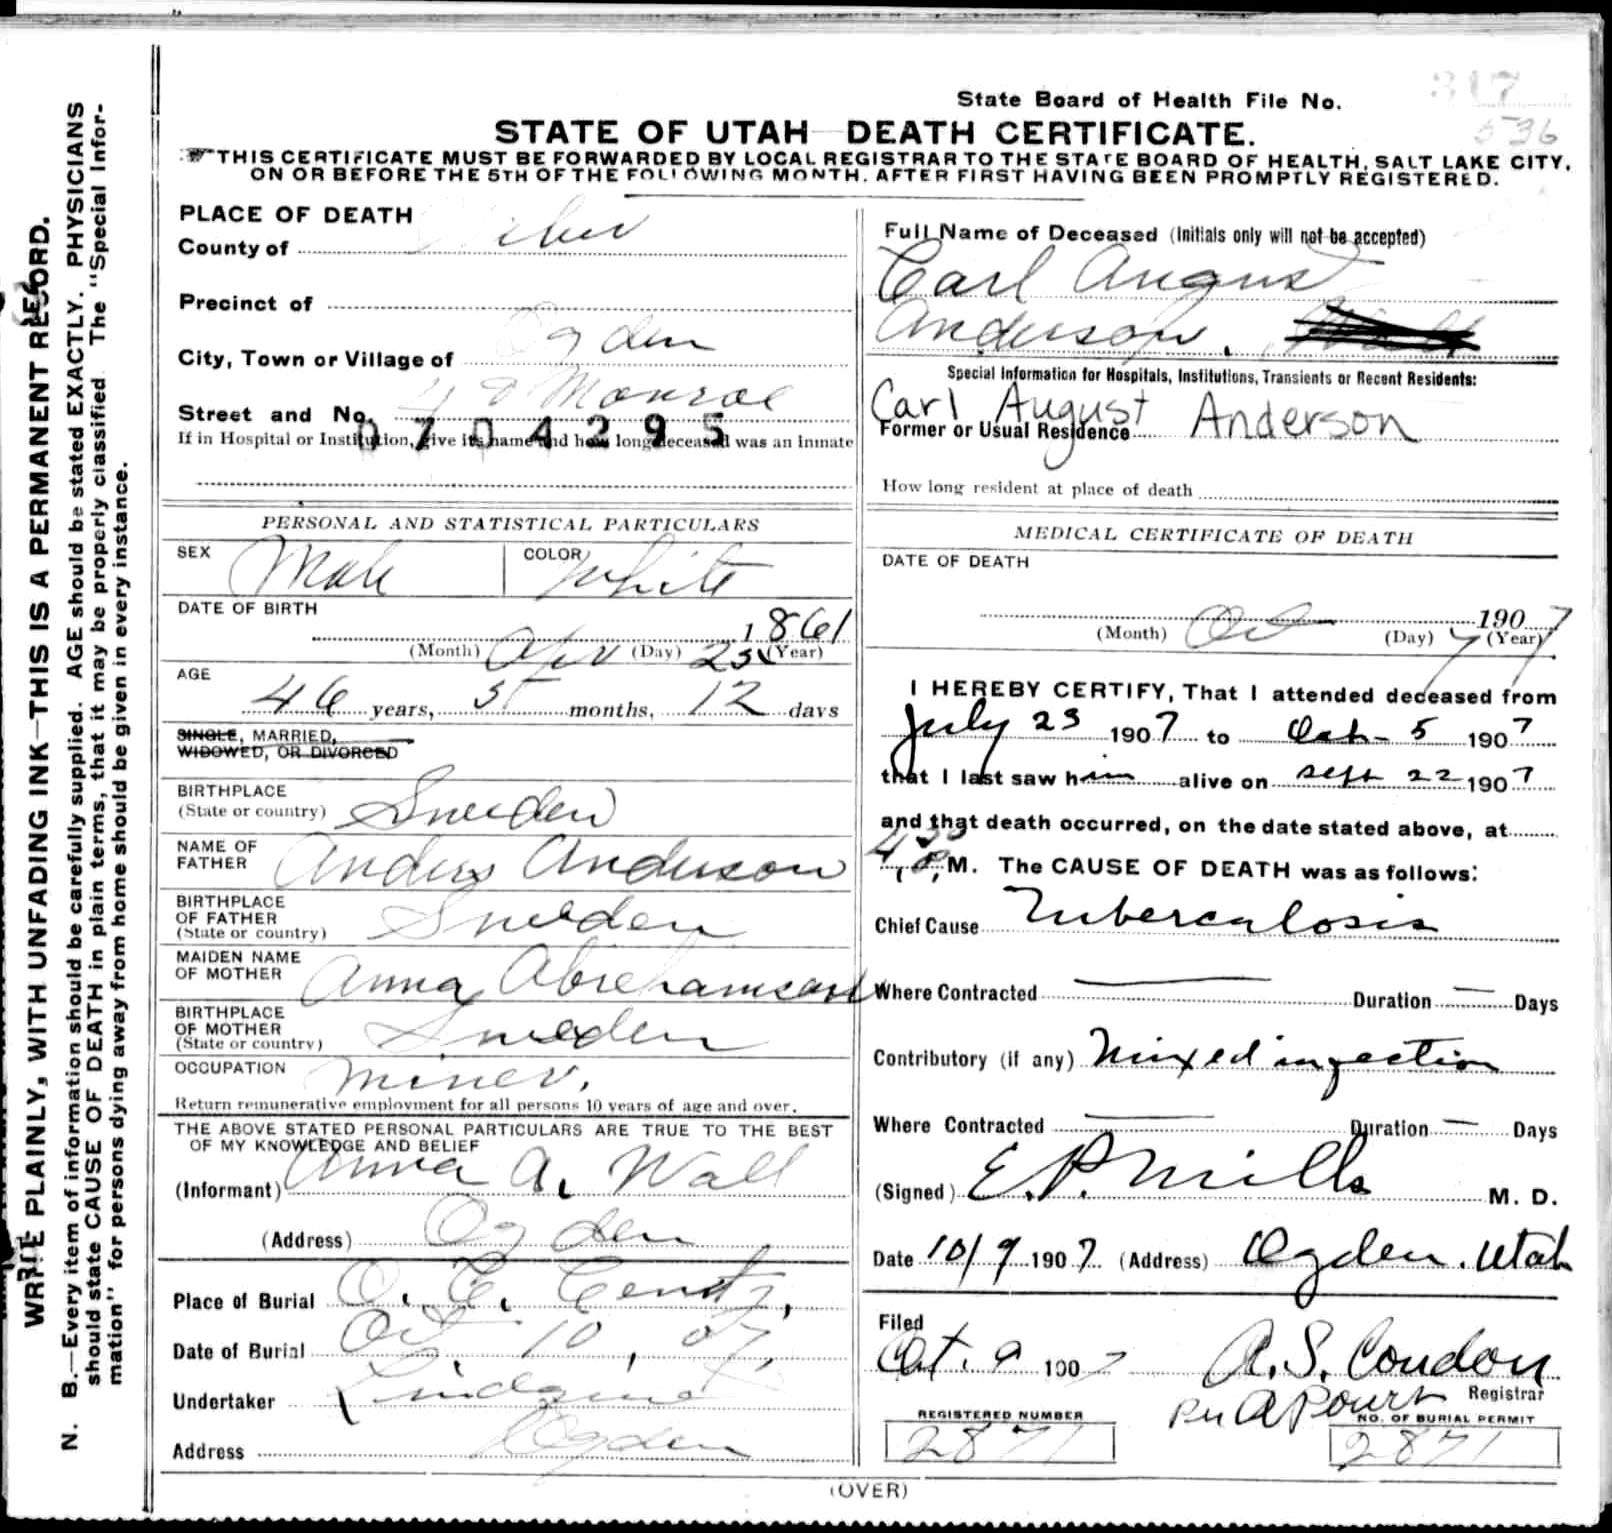 State Board of Health File No. 317
536
STATE OF UTAH DEATH CERTIFICATE.
THIS CERTIFICATE MUST BE FORWARDED BY LOCAL REGISTRAR TO THE STATE BOARD OF HEALTH, SALT LAKE CITY,
ON OR BEFORE THE 5TH OF THE FOLLOWING MONTH, AFTER FIRST HAVING BEEN PROMPTLY REGISTERED.
WRITE PLAINLY, WITH UNFADING INK—THIS IS A PERMANENT RECORD.
N. B.—Every item of information should be carefully supplied. AGE should be stated EXACTLY. PHYSICIANS
should state CAUSE OF DEATH in plain terms, that it may be properly classified. The "Special Infor-
mation" for persons dying away from home should be given in every instance.
PLACE OF DEATH
County of Weber
Precinct of
City, Town or Village of Ogden
Street and No. Monroe
0704295
If in Hospital or Institution, give its name and how long deceased was an Inmate
PERSONAL AND STATISTICAL PARTICULARS
SEX Male COLOR White
DATE OF BIRTH
1861
(Month) Apr (Day) 25 (Year)
AGE
46 years, 5 months, 12 days
SINGLE, MARRIED,
WIDOWED, OR DIVORCED
BIRTHPLACE
(State or country) Sweden
NAME OF
FATHER Anders Anderson
BIRTHPLACE
OF FATHER
(State or country) Sweden
MAIDEN NAME
OF MOTHER Anna Abrehamson
BIRTHPLACE
OF MOTHER
(State or country) Sweden
OCCUPATION miner.
Return remunerative employment for all persons 10 years of age and over.
THE ABOVE STATED PERSONAL PARTICULARS ARE TRUE TO THE BEST
OF MY KNOWLEDGE AND BELIEF
(Informant) Anna A. Wall
(Address) Ogden
Place of Burial O. C. Cemty,
Date of Burial Oct. 10, 07,
Undertaker Lindquist
Address Ogden
Full Name of Deceased (Initials only will not be accepted)
Carl August
Anderson.
Special Information for Hospitals, Institutions, Transients or Recent Residents:
Carl August Anderson
Former or Usual Residence
How long resident at place of death
MEDICAL CERTIFICATE OF DEATH
DATE OF DEATH
1907
(Month) Oct (Day) 7 (Year)
I HEREBY CERTIFY, That I attended deceased from
July 23 1907 to Oct- 5 1907
that I last saw him alive on Sept 22 1907
and that death occurred, on the date stated above, at
4 30 P, M. The CAUSE OF DEATH was as follows:
Chief Cause Tuberculosis
Where Contracted Duration Days
Contributory (if any) Mixed infection
Where Contracted Duration Days
(Signed) E. P. Mills M. D.
Date 10/9 1907 (Address) Ogden. Utah
Filed
Oct. 9 1907 A. S. Condon
Registrar
Per
REGISTERED NUMBER
2871
NO. OF BURIAL PERMIT
2871
(OVER)